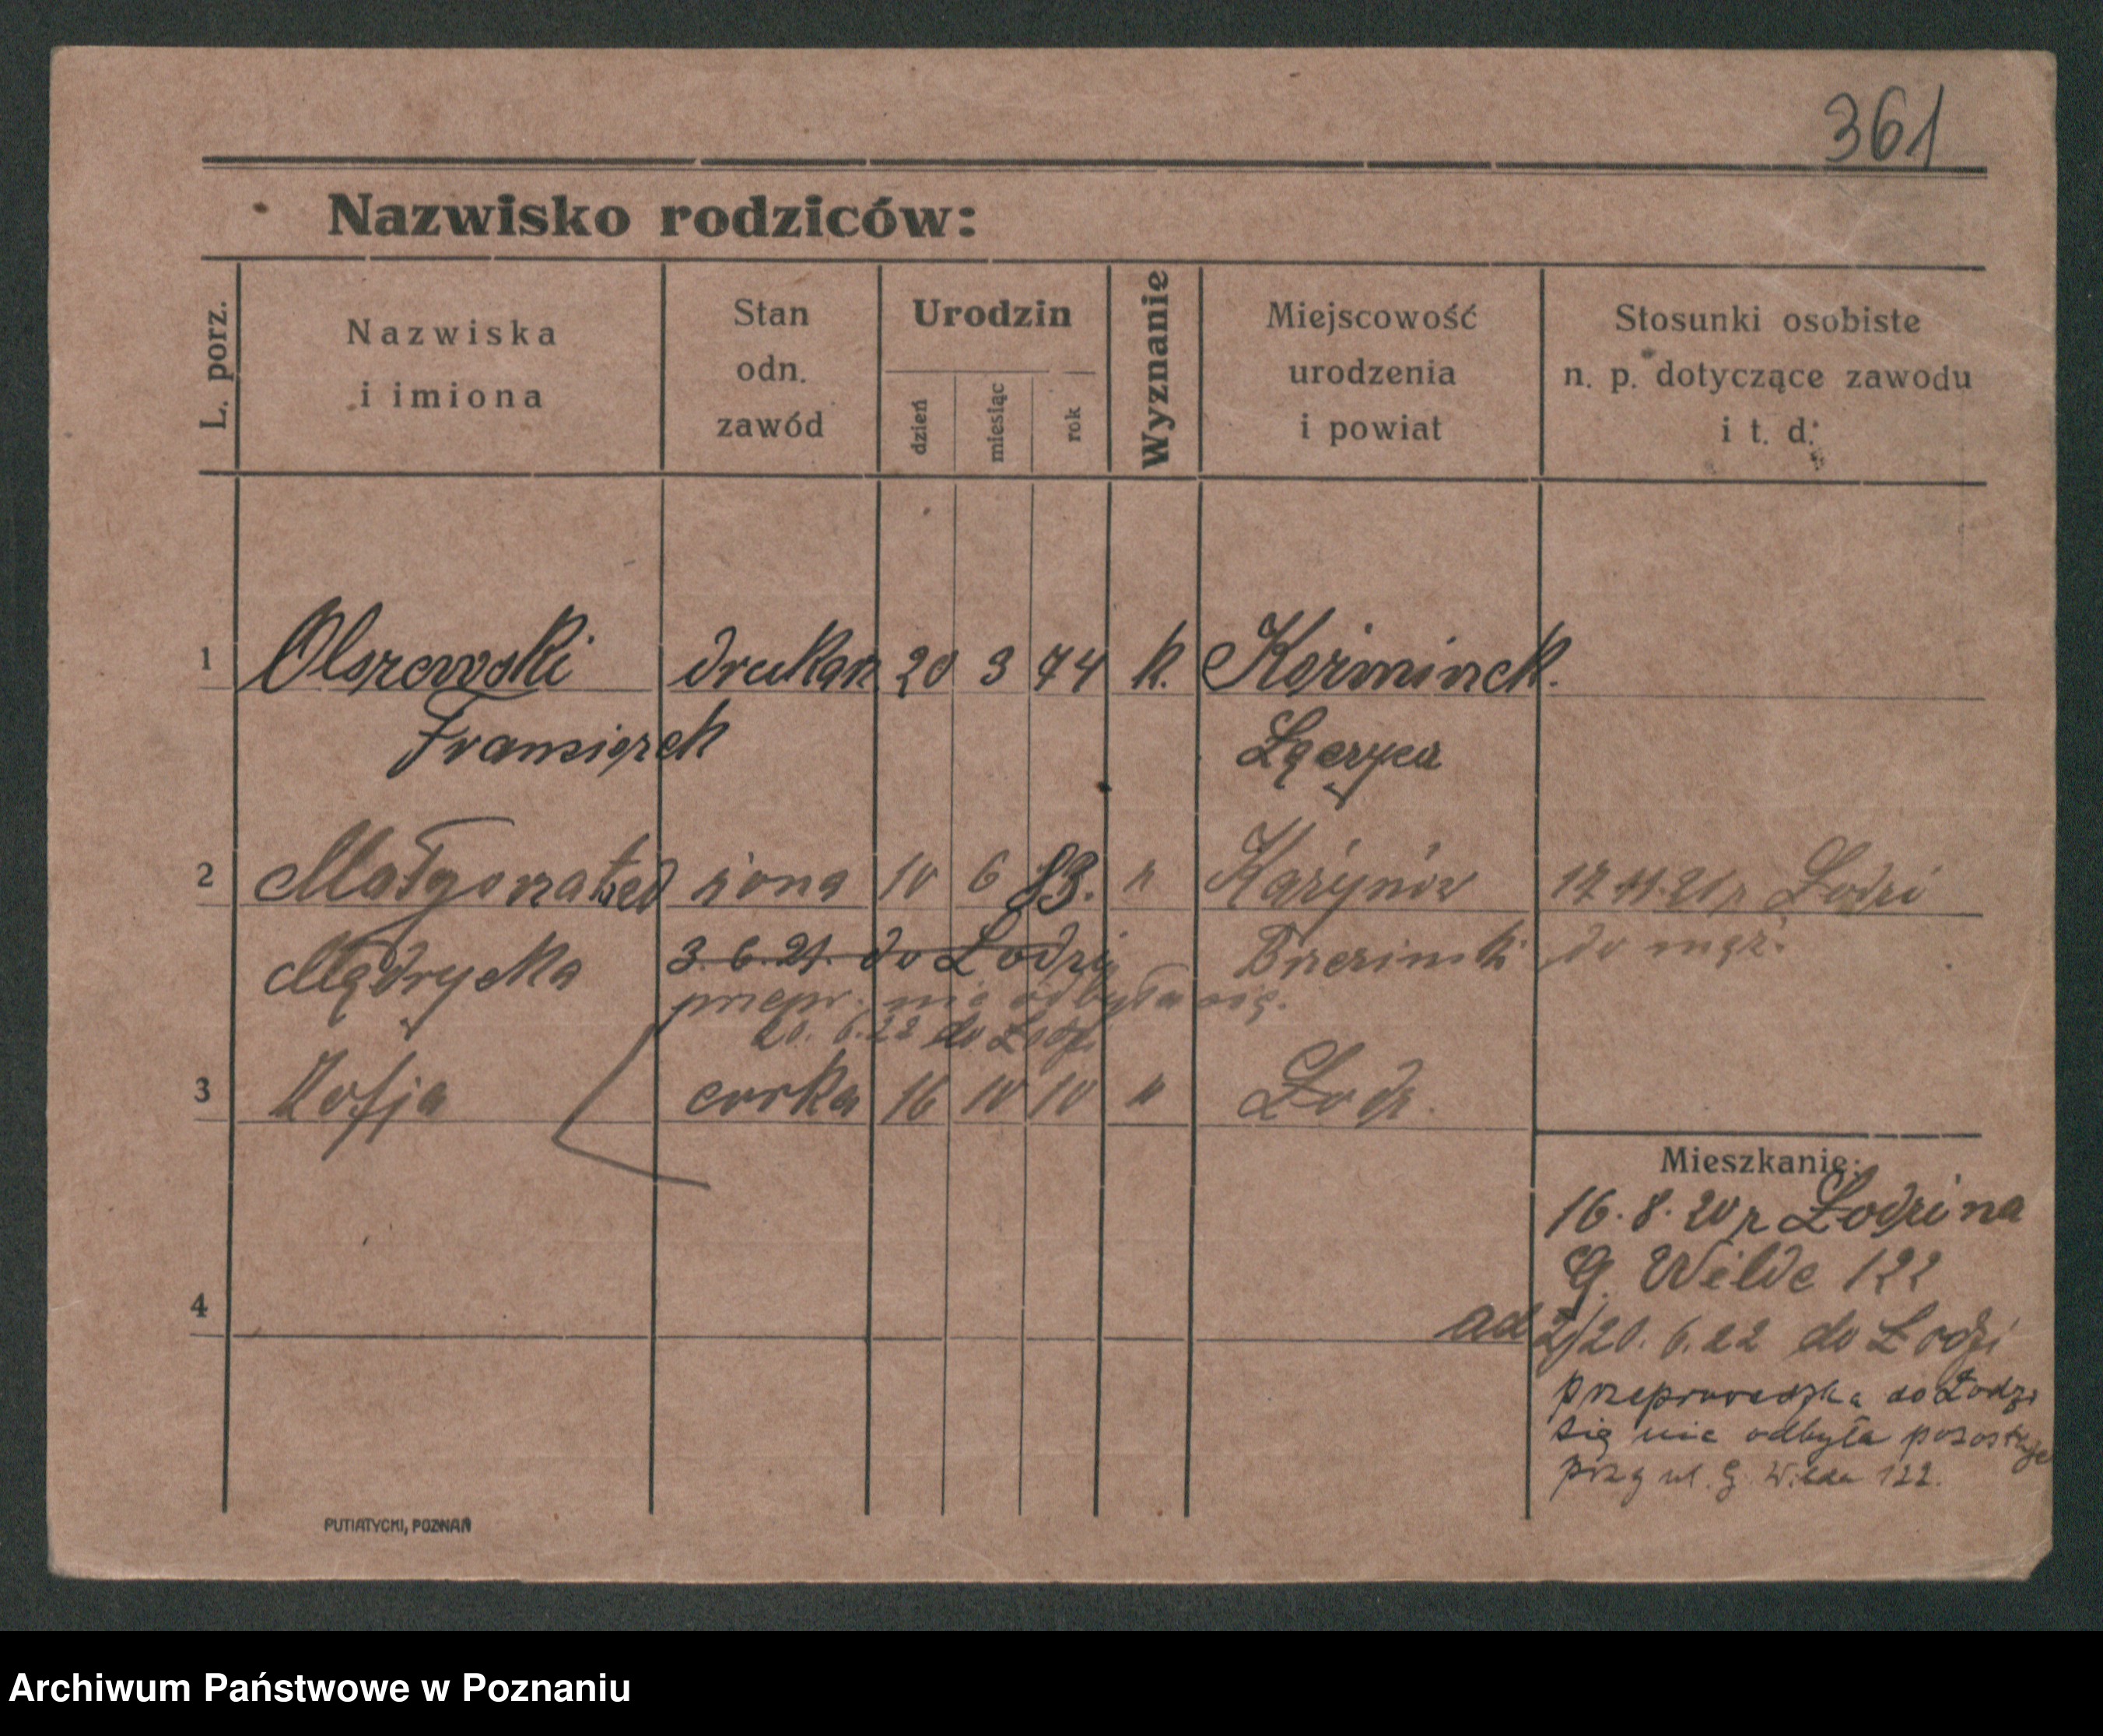 361
Nazwisko rodziców:
L. porz.
Nazwiska
i imiona
Stan
odn.
zawód
Urodzin
dzień
miesiąc
rok
Wyznanie
Miejscowość
urodzenia
i powiat
Stosunki osobiste
n. p. dotyczące zawodu
i t. d.
1 Olszewski drukarz 20 3 74 k.
Franciszek Łęczyca
2 Małgorzata żona 10 6 83. " 17 11.21 z Łodzi
Mądrycka 3.6.21. do Łodzi Brzezinsk do męż.
przepr. nie odbyła się.
20. 6.22 do Łodzi
3 Zofja corka 16 10 10 " Łodz.
Mieszkanie:
16. 8. 20 z Łodzi na
G. Wilde 122
4
ad 2/20. 6. 22 do Łodzi
przeprowadzka do Łodzi
się nie odbyła pozostaje
przy ul. G. Wilda 122.
PUTIATYCKI, POZNAŃ
Archiwum Państwowe w Poznaniu